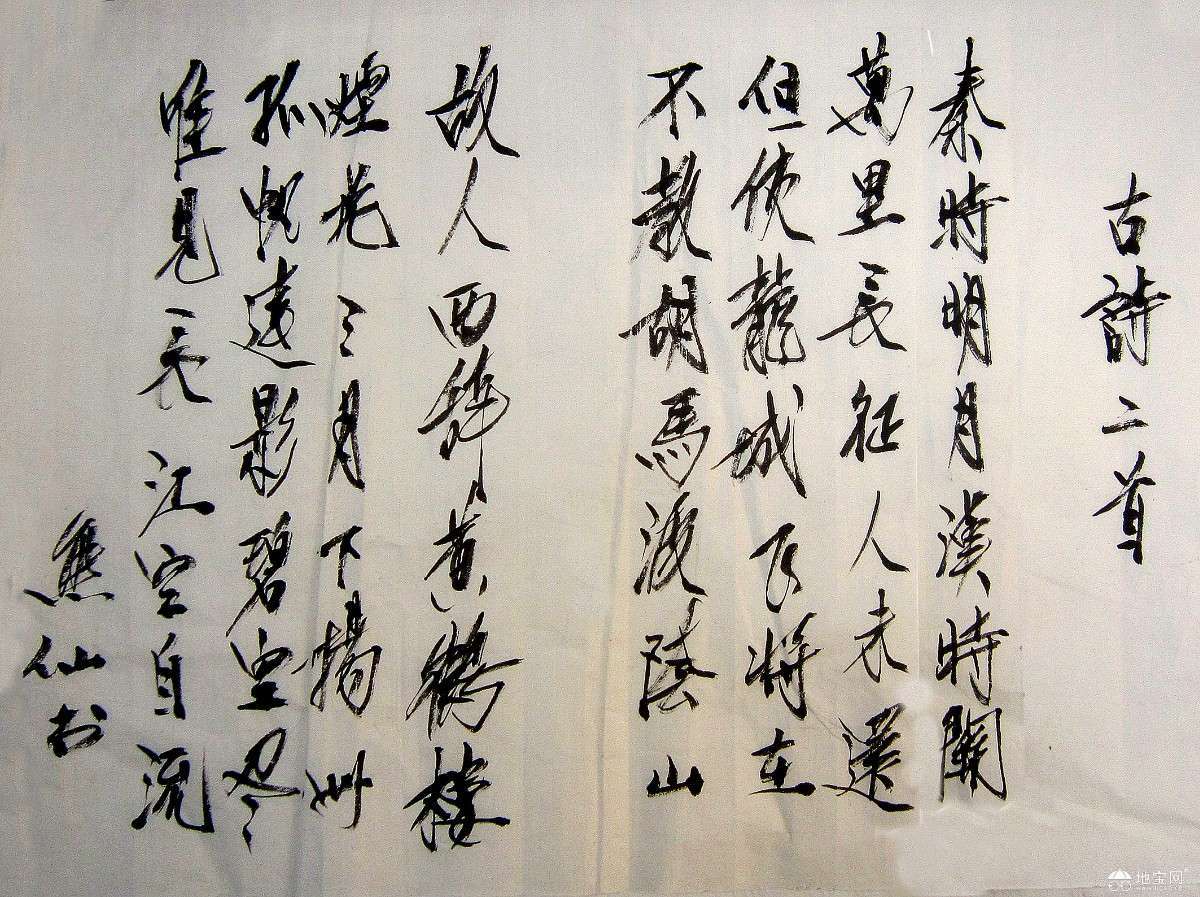 古詩二首
秦時明月漢時關
萬里長征人未還
但使龍城飞將在
不教胡馬渡陰山
故人西辭黃鶴樓
煙花三月下揚州
孤帆遠影碧空尽
唯見長江空自流
熊仙书
地宝网